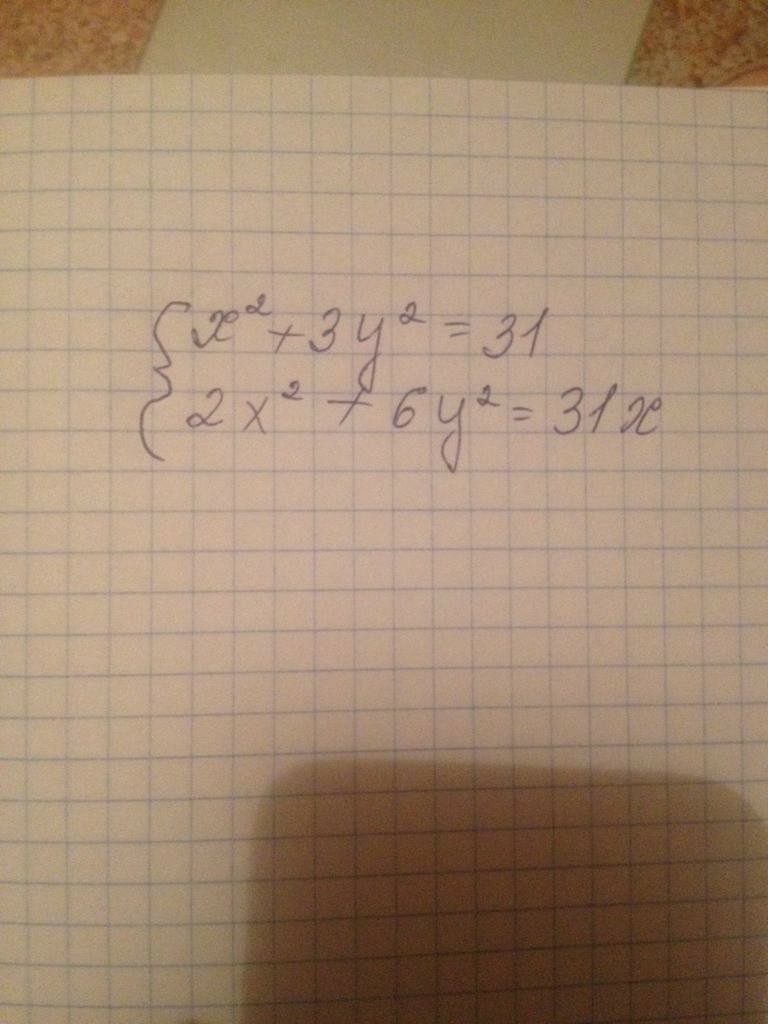 x² + 3y² = 31
2x² + 6y² = 31x